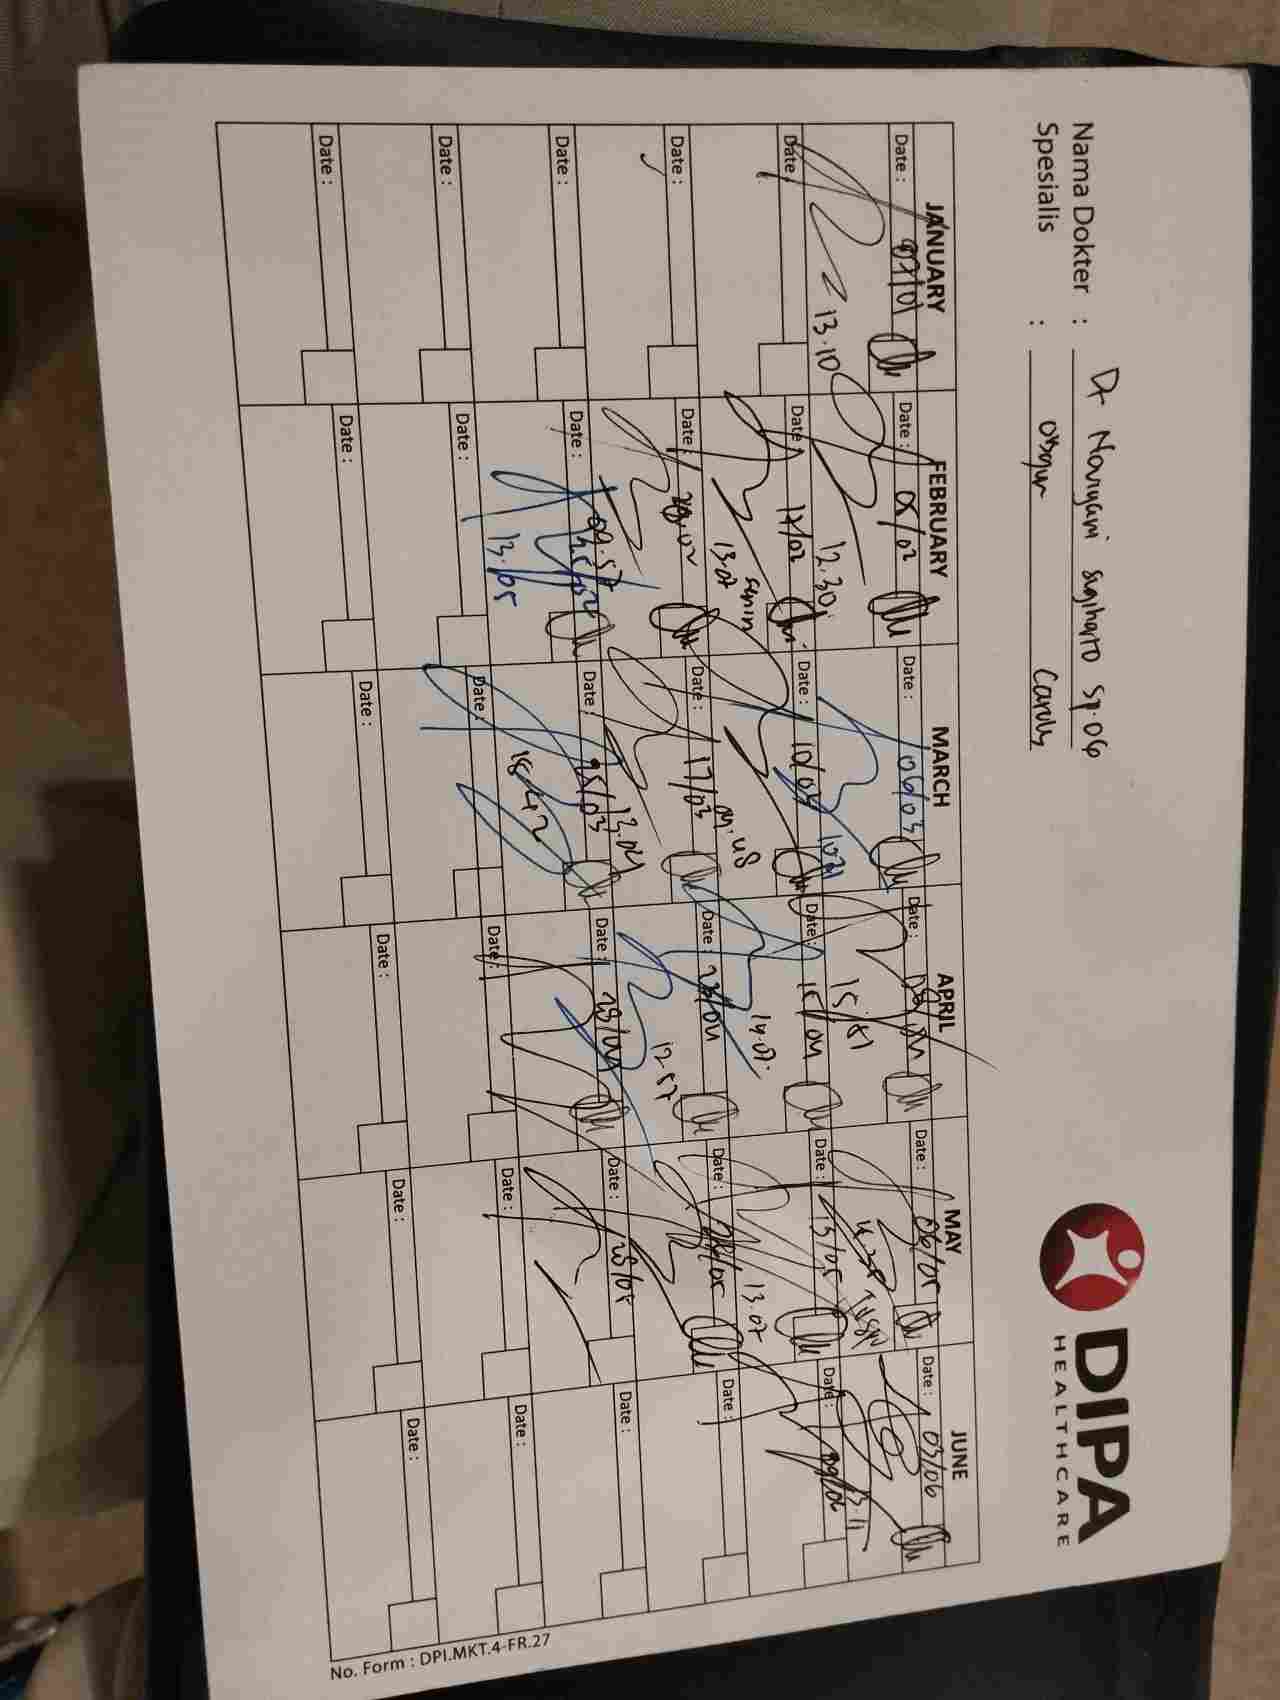 Nama Dokter : Dr Novryani Sugiharto Sp.OG
Spesialis : Obgyn
DIPA
HEALTHCARE
JANUARY FEBRUARY MARCH APRIL MAY JUNE
Date : 07/01 Date : 05/02 Date : 06/03 Date : 08/04 Date : 06/05 Date : 03/06
13.10 12.30 15:51 13.11
Date : Date : 17/02 Date : 10/03 Date : 15/04 Date : 13/05 Date : 09/06
13.07 senin 09.48 14.07 13.07
Date : Date : 20.02 Date : 17/03 Date : Date : Date :
09.57 13.04 12 57
Date : Date : 25/02 Date : 25/03 Date : 28/04 Date : 28/05 Date :
13.05 18.42
Date : Date : Date : Date : Date : Date :
Date : Date : Date : Date : Date : Date :
No. Form : DPI.MKT.4-FR.27